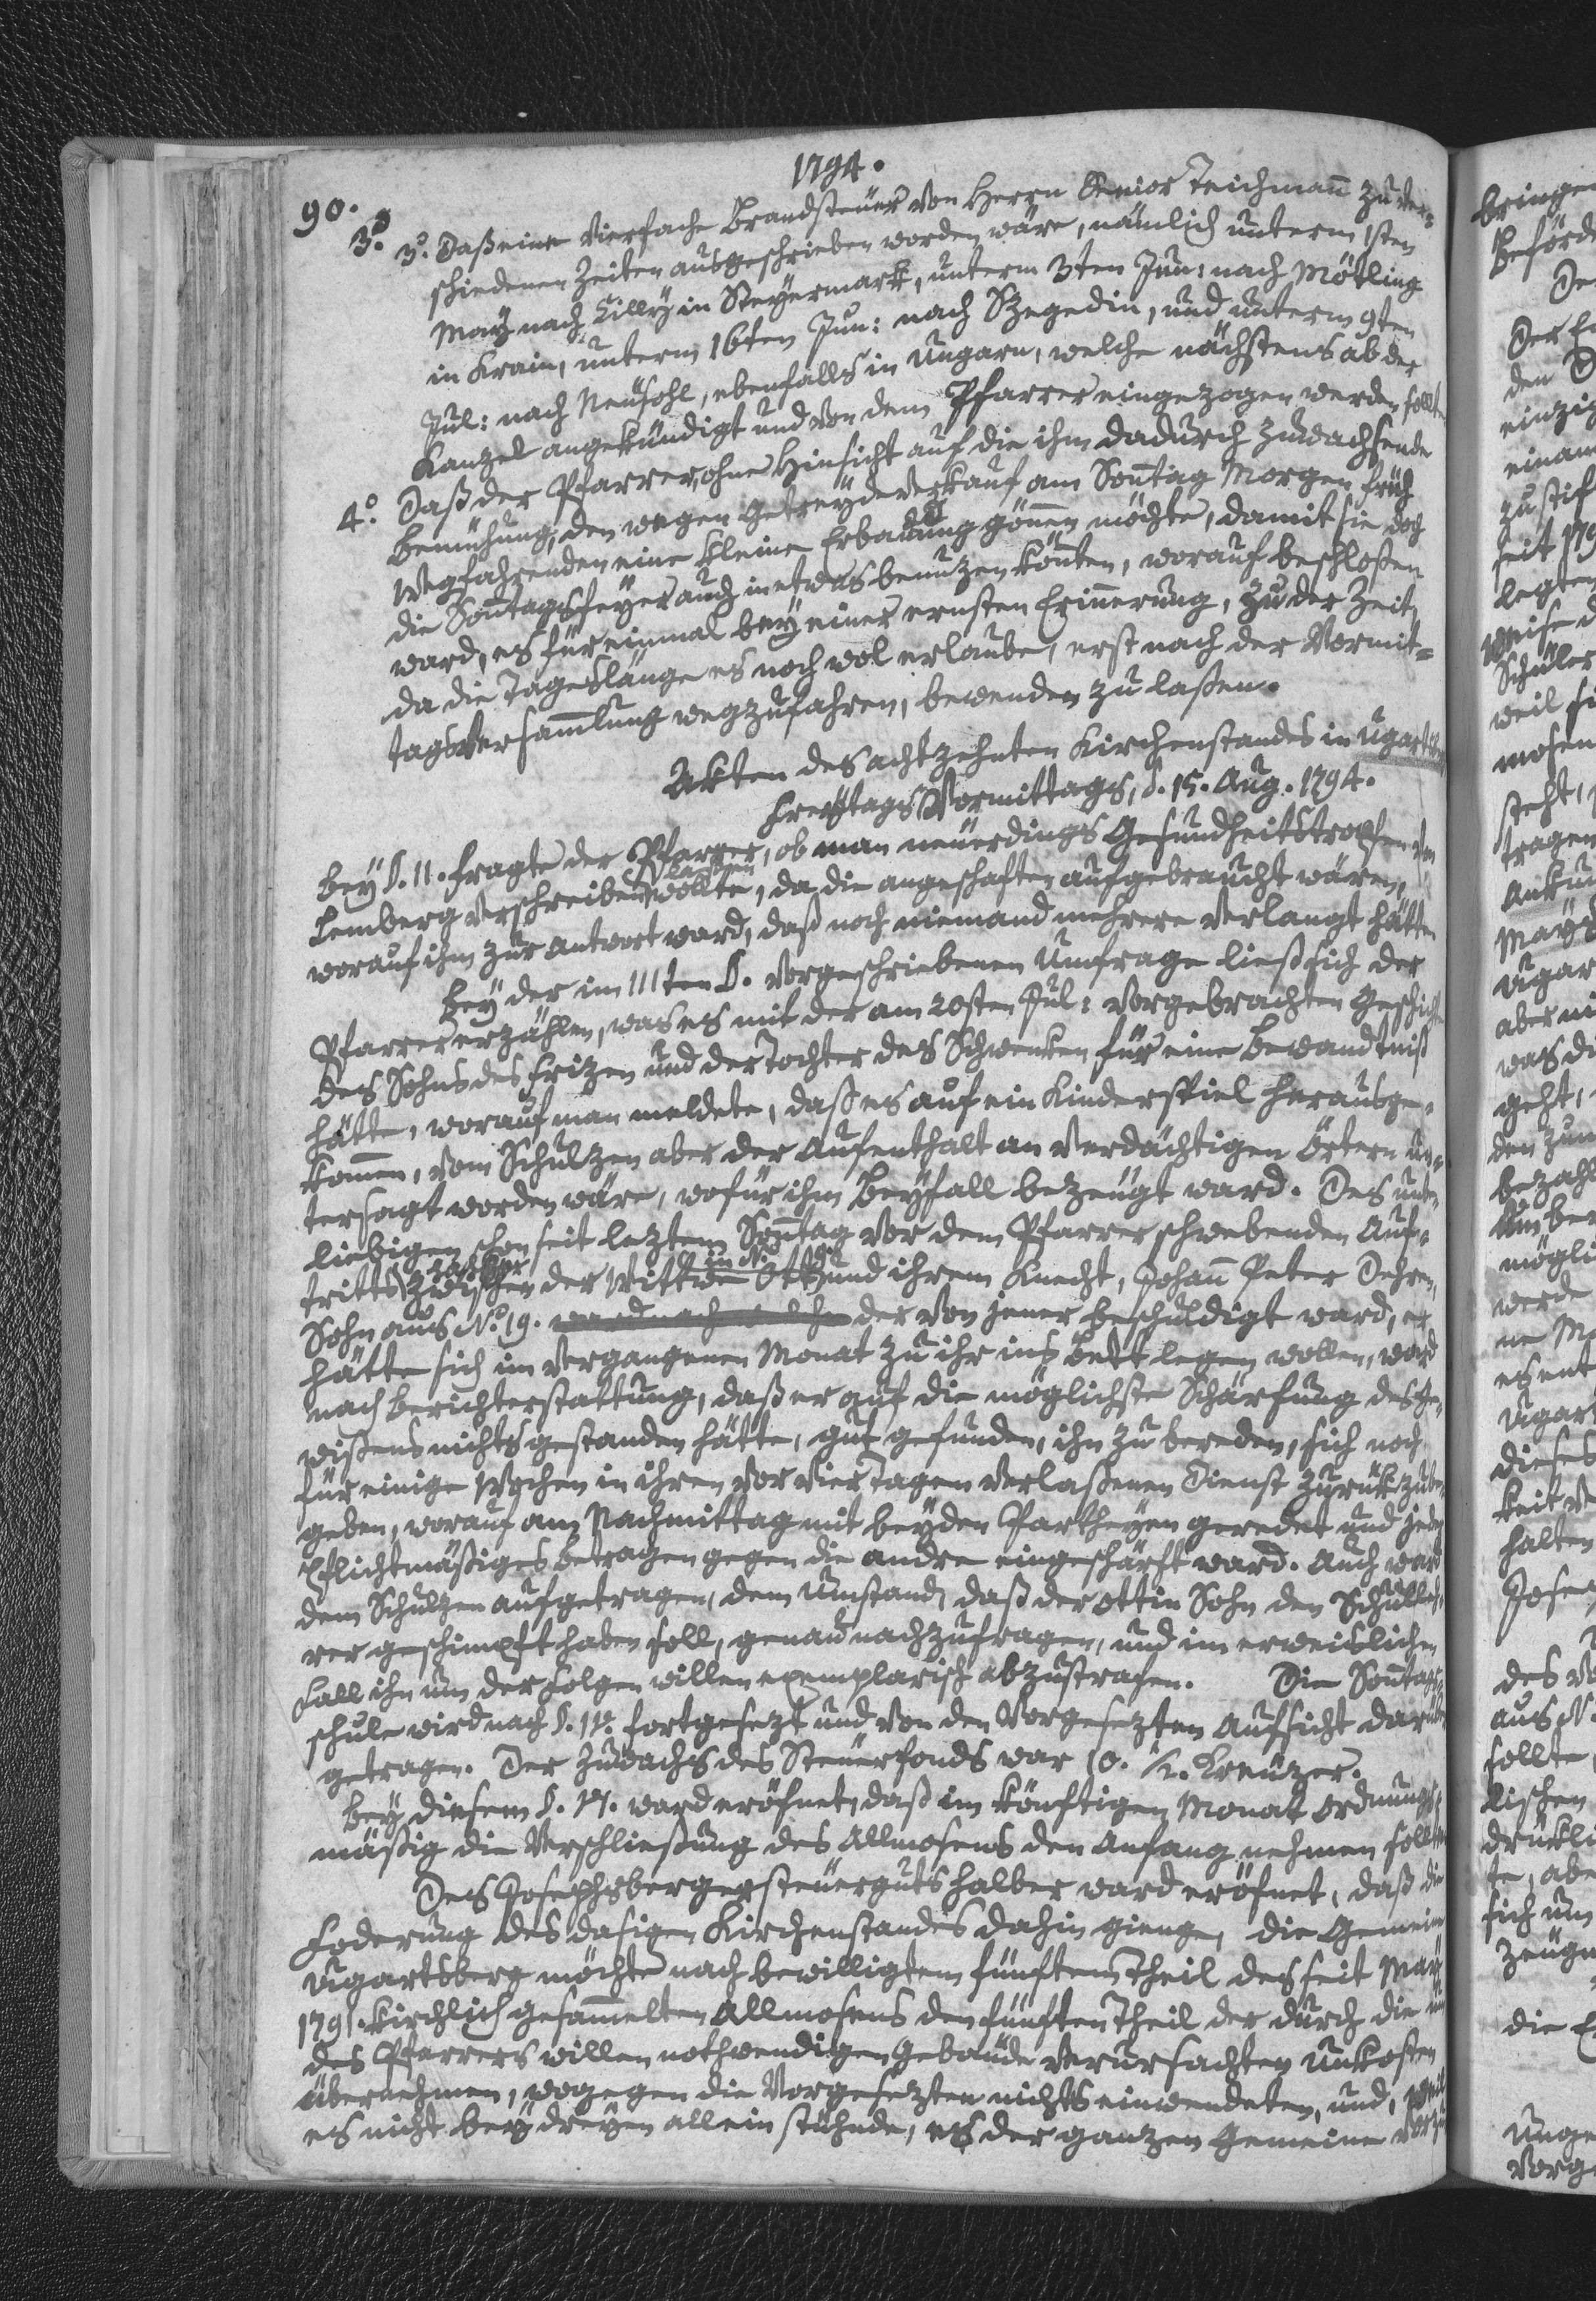 90.
1794.
3.° 3.° Daß eine vierfache Brandsteuer von Herrn Senior Teichmañ zu ver-
schiedenen Zeiten ausgeschrieben worden wäre, nämlich unterm 1sten
May nach Cilly in Steyermark, unterm 3ten Jun: nach Mötling
in Krain, unterm 16ten Jun: nach Szegedin, und unterm 9ten
Jul: nach Neusohl, ebenfalls in Ungarn, welche nächstens ab der
Kanzel angekündigt und von dem Pfarrer eingezogen werden sollte.
4.° Daß der Pfarrer, ohne Hinsicht auf die ihm dadurch zuwachsende
Bemühung, den wegen Getreydeverkauf am Soñtag Morgen früh
Wegfahrenden eine kleine Erbauung göñen möchte, damit sie doch
die Soñtagsfeyer auch in etwas benuzen köñten, worauf beschloßen
ward, es für einmal bey einer ernsten Eriñerung, zu der Zeit,
da die Tageslänge es noch wol erlaube, erst nach der Vormit-
tagsversam̃lung wegzufahren, bewenden zu laßen.
Akten des achtzehnten Kirchenstandes in Ugartsberg
Freytags Vormittags, d. 15. Aug. 1794.
Bey §. II. fragte der Pfarrer, ob man neuerdings Gesundheitstropfen von
Lemberg verschreiben laßen wollte, da die angeschaften aufgebraucht wären,
worauf ihm zur Antwort ward, daß noch niemand mehrere verlangt hätte.
Bey der im IIIten §. vorgeschriebenen Umfrage ließ sich der
Pfarrer erzählen, was es mit der am 20sten Jul: vorgebrachten Geschichte
des Sohns des Frizen und der Tochter des Schwenken für eine Bewandtniß
hätte, worauf man meldete, daß es auf ein Kinderspiel herausge-
kom̃en, vom Schulzen aber der Aufenthalt an verdächtigen Örtern un-
tersagt worden wäre, wofür ihm Beyfall bezeugt ward. Des unbe-
liebigen schon seit leztem Soñtag vor dem Pfarrer schwebenden Auf-
tritts zwischen der Wittwe Ott in N.° 9. und ihrem Knecht, Johañ Peter Dehren,
Sohn aus N.° 19. der von jener beschuldigt ward, er
hätte sich im vergangenen Monat zu ihr ins Bett legen wollen, ward
nach Berichterstattung, daß er auf die möglichste Schärfung des Ge-
wißens nichts gestanden hätte, gut gefunden, ihn zu bereden, sich noch
für einige Wochen in ihren vor vier Tagen verlaßenen Dienst zurük zu be-
geben, worauf am Nachmittag mit beyden Partheyen geredet und jeder
Pflichtmäßiges Betragen gegen die andre eingeschärft ward. Auch ward
dem Schulzen aufgetragen, dem Umstand, daß der Ottin Sohn den Schulleh-
rer geschimpft haben soll, genau nachzufragen, und im erweislichen
Fall ihn um der Folgen willen exemplarisch abzustrafen. Die Soñtags-
schule wird nach §. IV. fortgesezt und von den Vorgesezten Aufsicht darüber
getragen. Der Zuwachs des Steuerfonds war 10. ½. Kreuzer.
Bey diesem §. VI. ward eröfnet, daß im künftigen Monat ordnungs-
mäßig die Verschließung des Allmosens den Anfang nehmen sollte.
Des Josephsbergersteuerguts halber ward eröfnet, daß die
Foderung des dasigen Kirchenstandes dahin gienge, die Gemeine
Ugartsberg möchte nach bewilligtem fünftem Theil des seit May
1791. kirchlich gesam̃elten Allmosens den fünften Theil der durch die um
des Pfarrers willen nothwendigen Gebäude verursachten Unkosten
übernehmen, wogegen die Vorgesezten nichts einwendeten, und, weil
es nicht bey dreyen allein stühnde, es der ganzen Gemeine vorzu